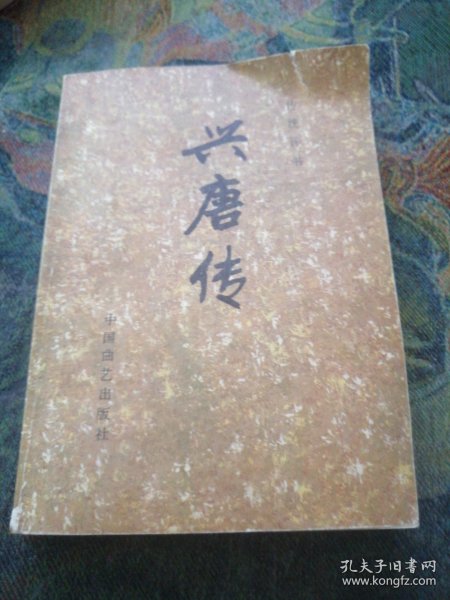 兴唐传
中国曲艺出版社
孔夫子旧书网
www.kongfz.com